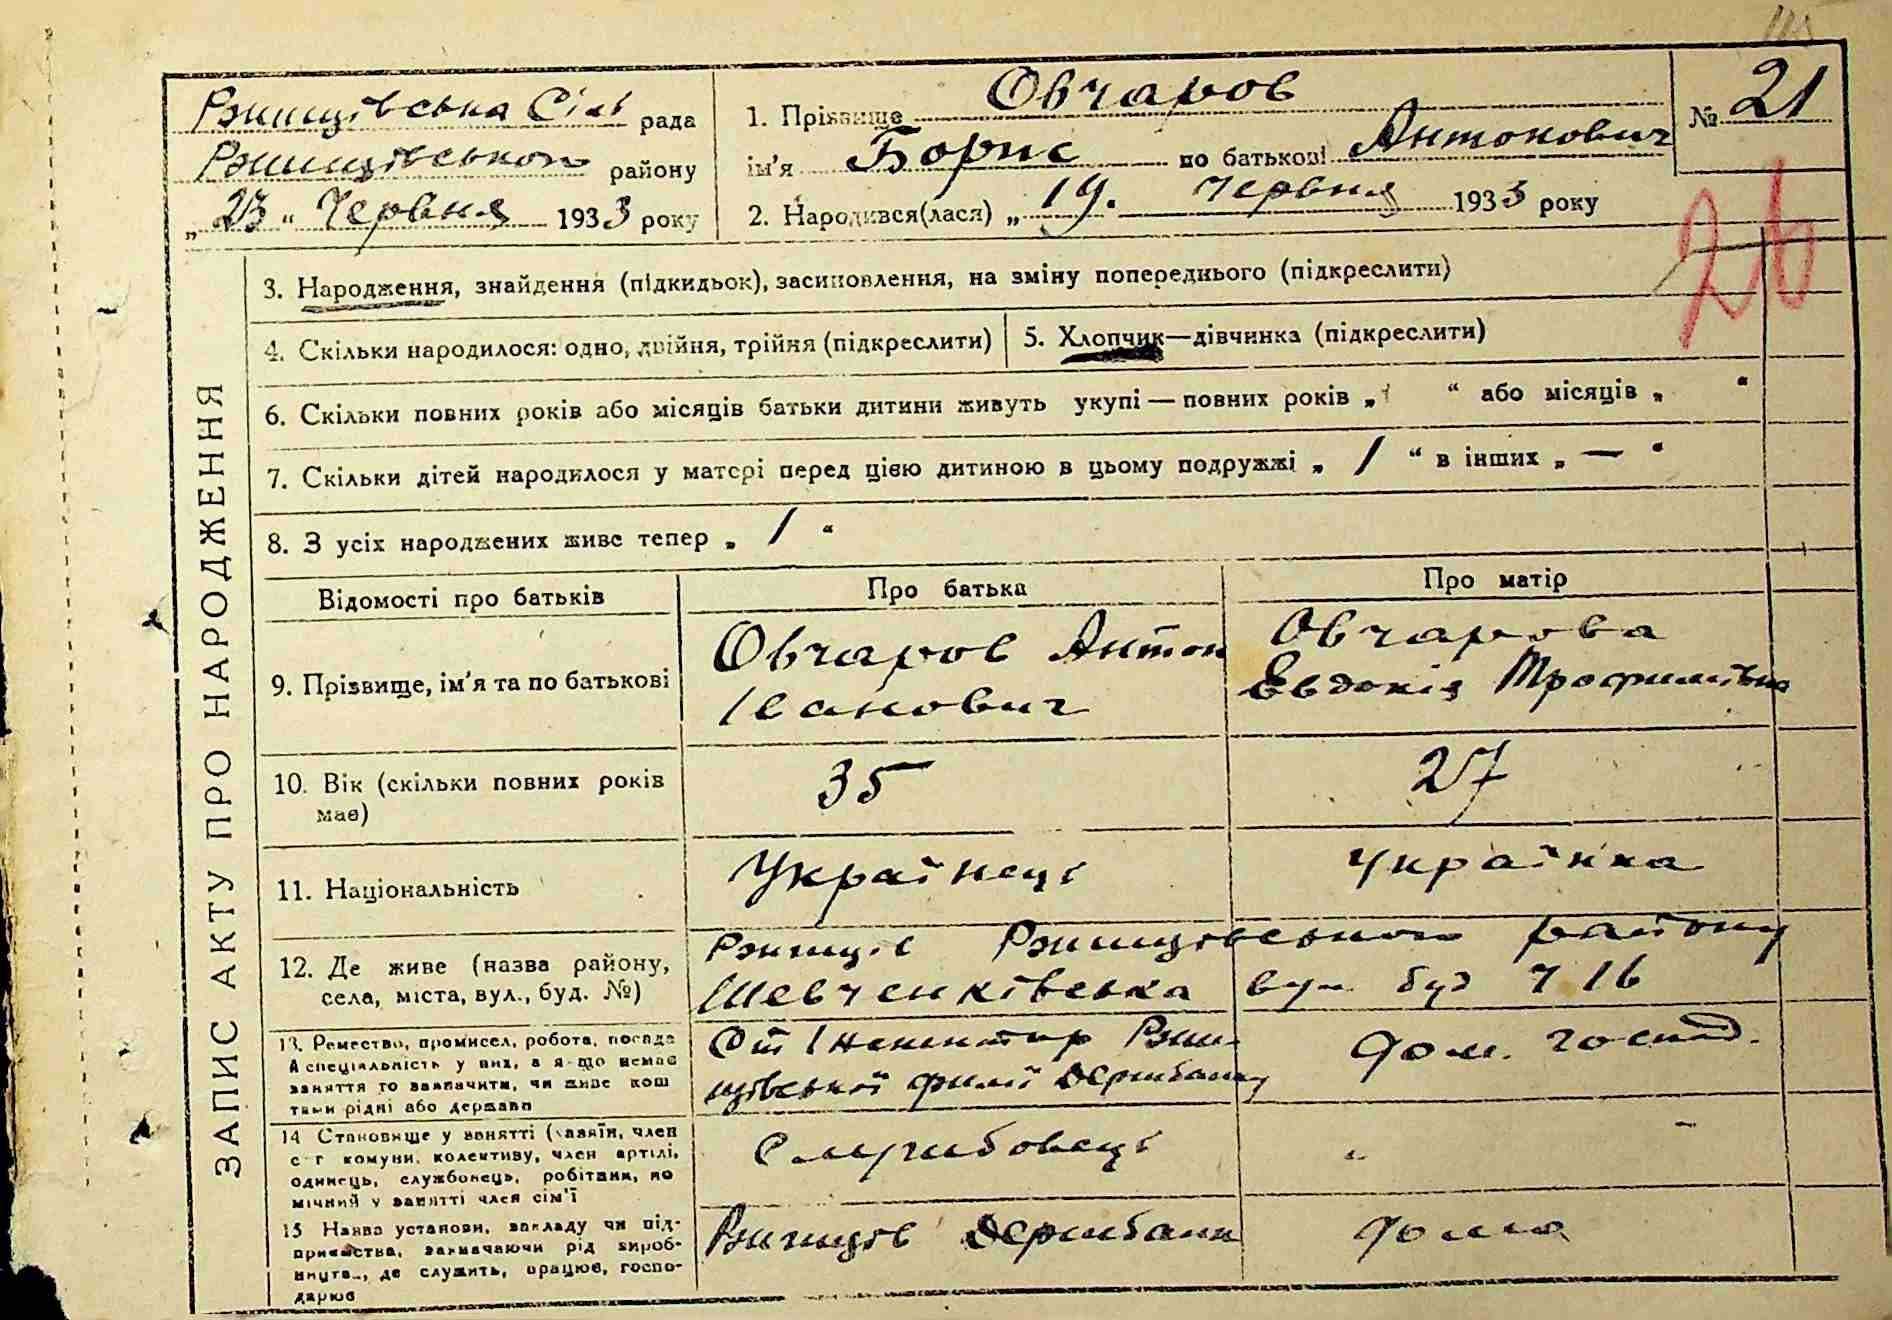 Ржищівська Сіл рада
Ржищівського району
„23“ Червня 1933 року
1. Прізвище Овчаров
ім'я Борис по батькові Антонович
2. Народився(лася) „19. Червня 1933 року
№ 21
26
ЗАПИС АКТУ ПРО НАРОДЖЕННЯ
3. Народження, знайдення (підкидьок), засиновлення, на зміну попереднього (підкреслити)
4. Скільки народилося: одно, двійня, трійня (підкреслити)
5. Хлопчик—дівчинка (підкреслити)
6. Скільки повних років або місяців батьки дитини живуть укупі — повних років „ “ або місяців „ “
7. Скільки дітей народилося у матері перед цією дитиною в цьому подружжі „ 1 “ в інших „ — “
8. З усіх народжених живе тепер „ 1 “
Відомості про батьків
Про батька
Про матір
9. Прізвище, ім'я та по батькові
Овчаров Антон
Іванович
Овчарова
Евдокія Трофимівна
10. Вік (скільки повних років
має)
35
27
11. Національність
Українець
українка
12. Де живе (назва району,
села, міста, вул., буд. №)
Ржищів Ржищівського району
Шевченківська вул. буд 16
13. Ремество, промисел, робота, посада
А спеціяльність у них, а якщо немає
заняття то зазначити, чи живе кош
тами рідні або держави
Ржи-
щівської філії Держбанку
дом. господ.
14 Становище у занятті (хазяїн, член
с-г комуни, колективу, член артілі,
одинець, службовець, робітник, по
мічний у занятті член сім'ї
Службовець
„ -
15 Назва установи, закладу чи під-
приємства, зазначаючи рід вироб-
ництва, де служить, працює, госпо-
дарює
Ржищів Держбанк
дома